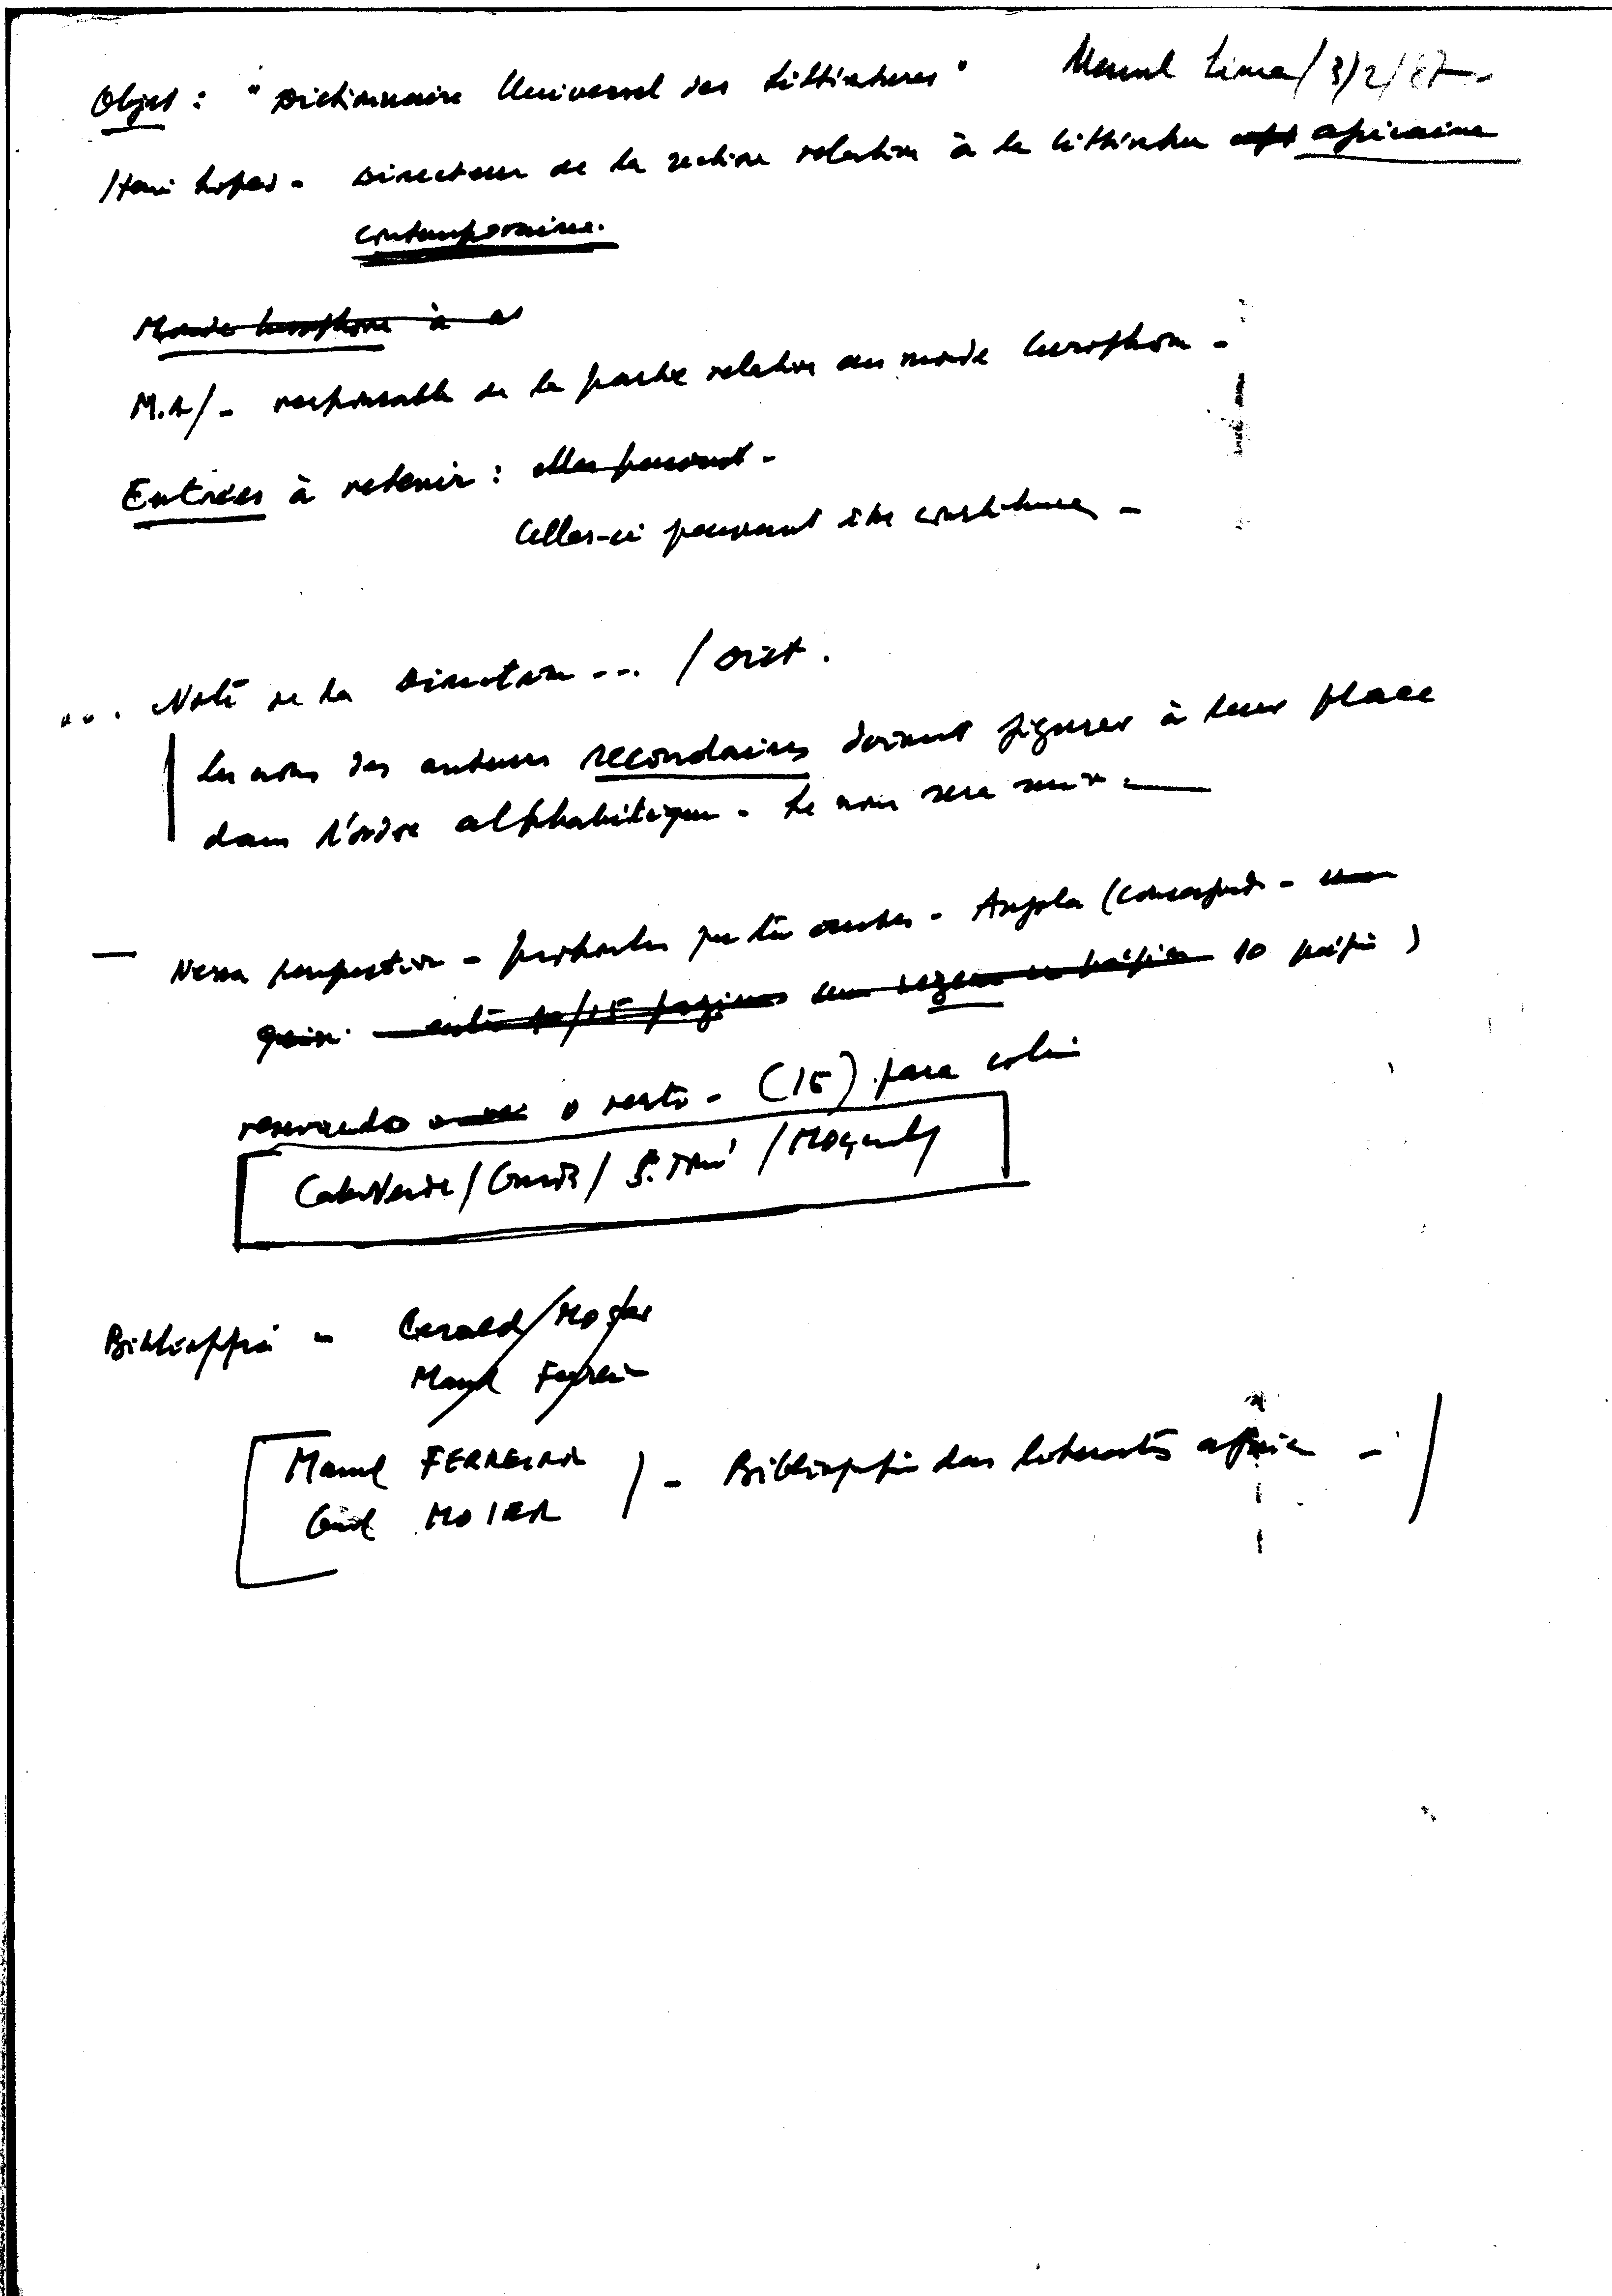 Objet : "Dictionnaire Universel des Littératures" Manuel Lima / 3/2/87 -
Henri Lopes - Directeur de la section relative à la littérature africaine
contemporaine.
Monde lusophone à
M.A/ - responsable de la partie relative au monde lusophone -
Entrées à retenir : elles peuvent -
Celles-ci peuvent être constituées -
... Note de la Direction ... / Dict.
les noms des auteurs secondaires doivent figurer à leur place
dans l'ordre alphabétique - Le nom sera
Nessa perspectiva - Angola (
entre 10/15 páginas 10 páginas )
reservando o resto - (15) para cobrir
Cabo Verde / Guiné / S. Tomé / Moçamb
Bibliografia - Gerald / Moser
Manuel Ferreira
Manuel FERREIRA
Gerald MOSER ) - Bibliografia das literaturas afric -